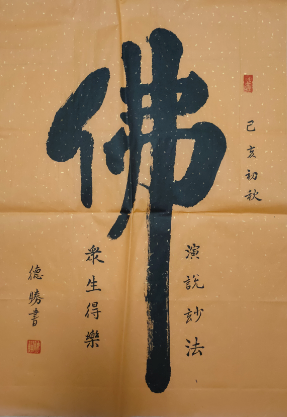 己亥初秋
佛
演說妙法
眾生得樂
德勝書